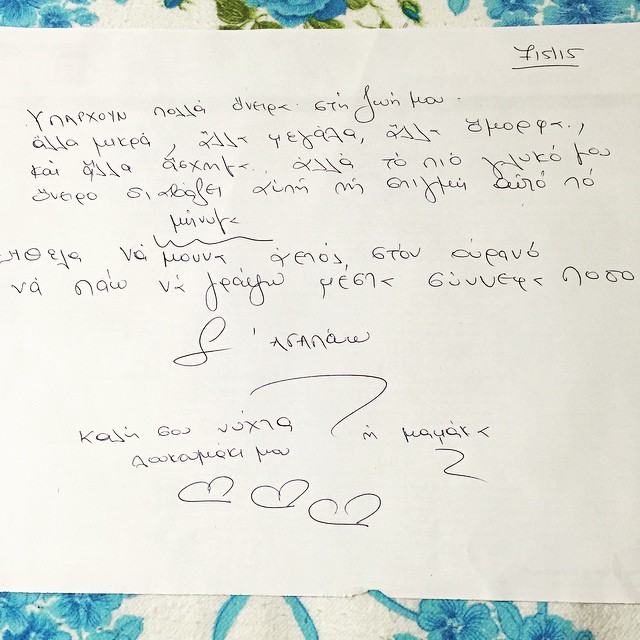 7/5/15
ΥΠΑΡΧΟΥΝ πολλά όνειρα στή ζωή μου.
άλλα μικρά, άλλα μεγάλα, άλλα όμορφα,
και άλλα άσχημα. αλλά τό πιό γλυκό μου
όνειρο διαβάζει αύτή τή στιγμή αυτό τό
μήνυμα
ηθελα νά μουνα άετός, στόν ούρανό
νά πάω νά γράψω μέσα σύννεφα ποσο
σ' αγαπάω
Καλή σου νύχτα
Λουκουμάκι μου
ή μαμάκα